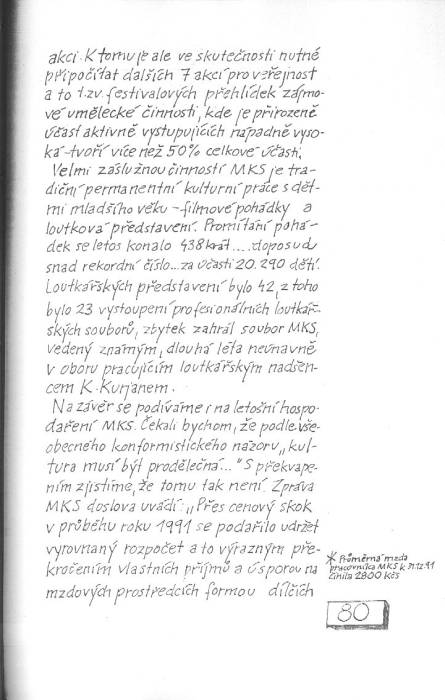 akcí. K tomu je ale ve skutečnosti nutné
připočítat dalších 7 akcí pro veřejnost
a to t.zv. festivalových přehlídek zájmo-
vé umělecké činnosti, kde je přirozeně
účast aktivně vystupujících nápadně vyso-
ká - tvoří více než 50% celkové účasti.
Velmi záslužnou činností MKS je tra-
diční permanentní kulturní práce s dět-
mi mladšího věku - filmové pohádky a
loutková představení. Promítání pohá-
dek se letos konalo 438 krát.... doposud
snad rekordní číslo... za účasti 20.290 dětí.
Loutkářských představení bylo 42, z toho
bylo 23 vystoupení profesionálních loutkář-
ských souborů, zbytek zahrál soubor MKS,
vedený známým, dlouhá léta neúnavně
v oboru pracujícím loutkářským nadšen-
cem K. Kurjanem.
Na závěr se podíváme i na letošní hospo-
daření MKS. Čekali bychom, že podle vše-
obecného konformistického názoru „kul-
tura musí být prodělečná..." S překvape-
ním zjistíme, že tomu tak není. Zpráva
MKS doslova uvádí: „Přes cenový skok
v průběhu roku 1991 se podařilo udržet
vyrovnaný rozpočet a to výrazným pře-
kročením vlastních příjmů a úsporou na
mzdových prostředcích formou dílčích
* Průměrná mzda
pracovníka MKS k 31.12.91
činila 2800 kčs
80